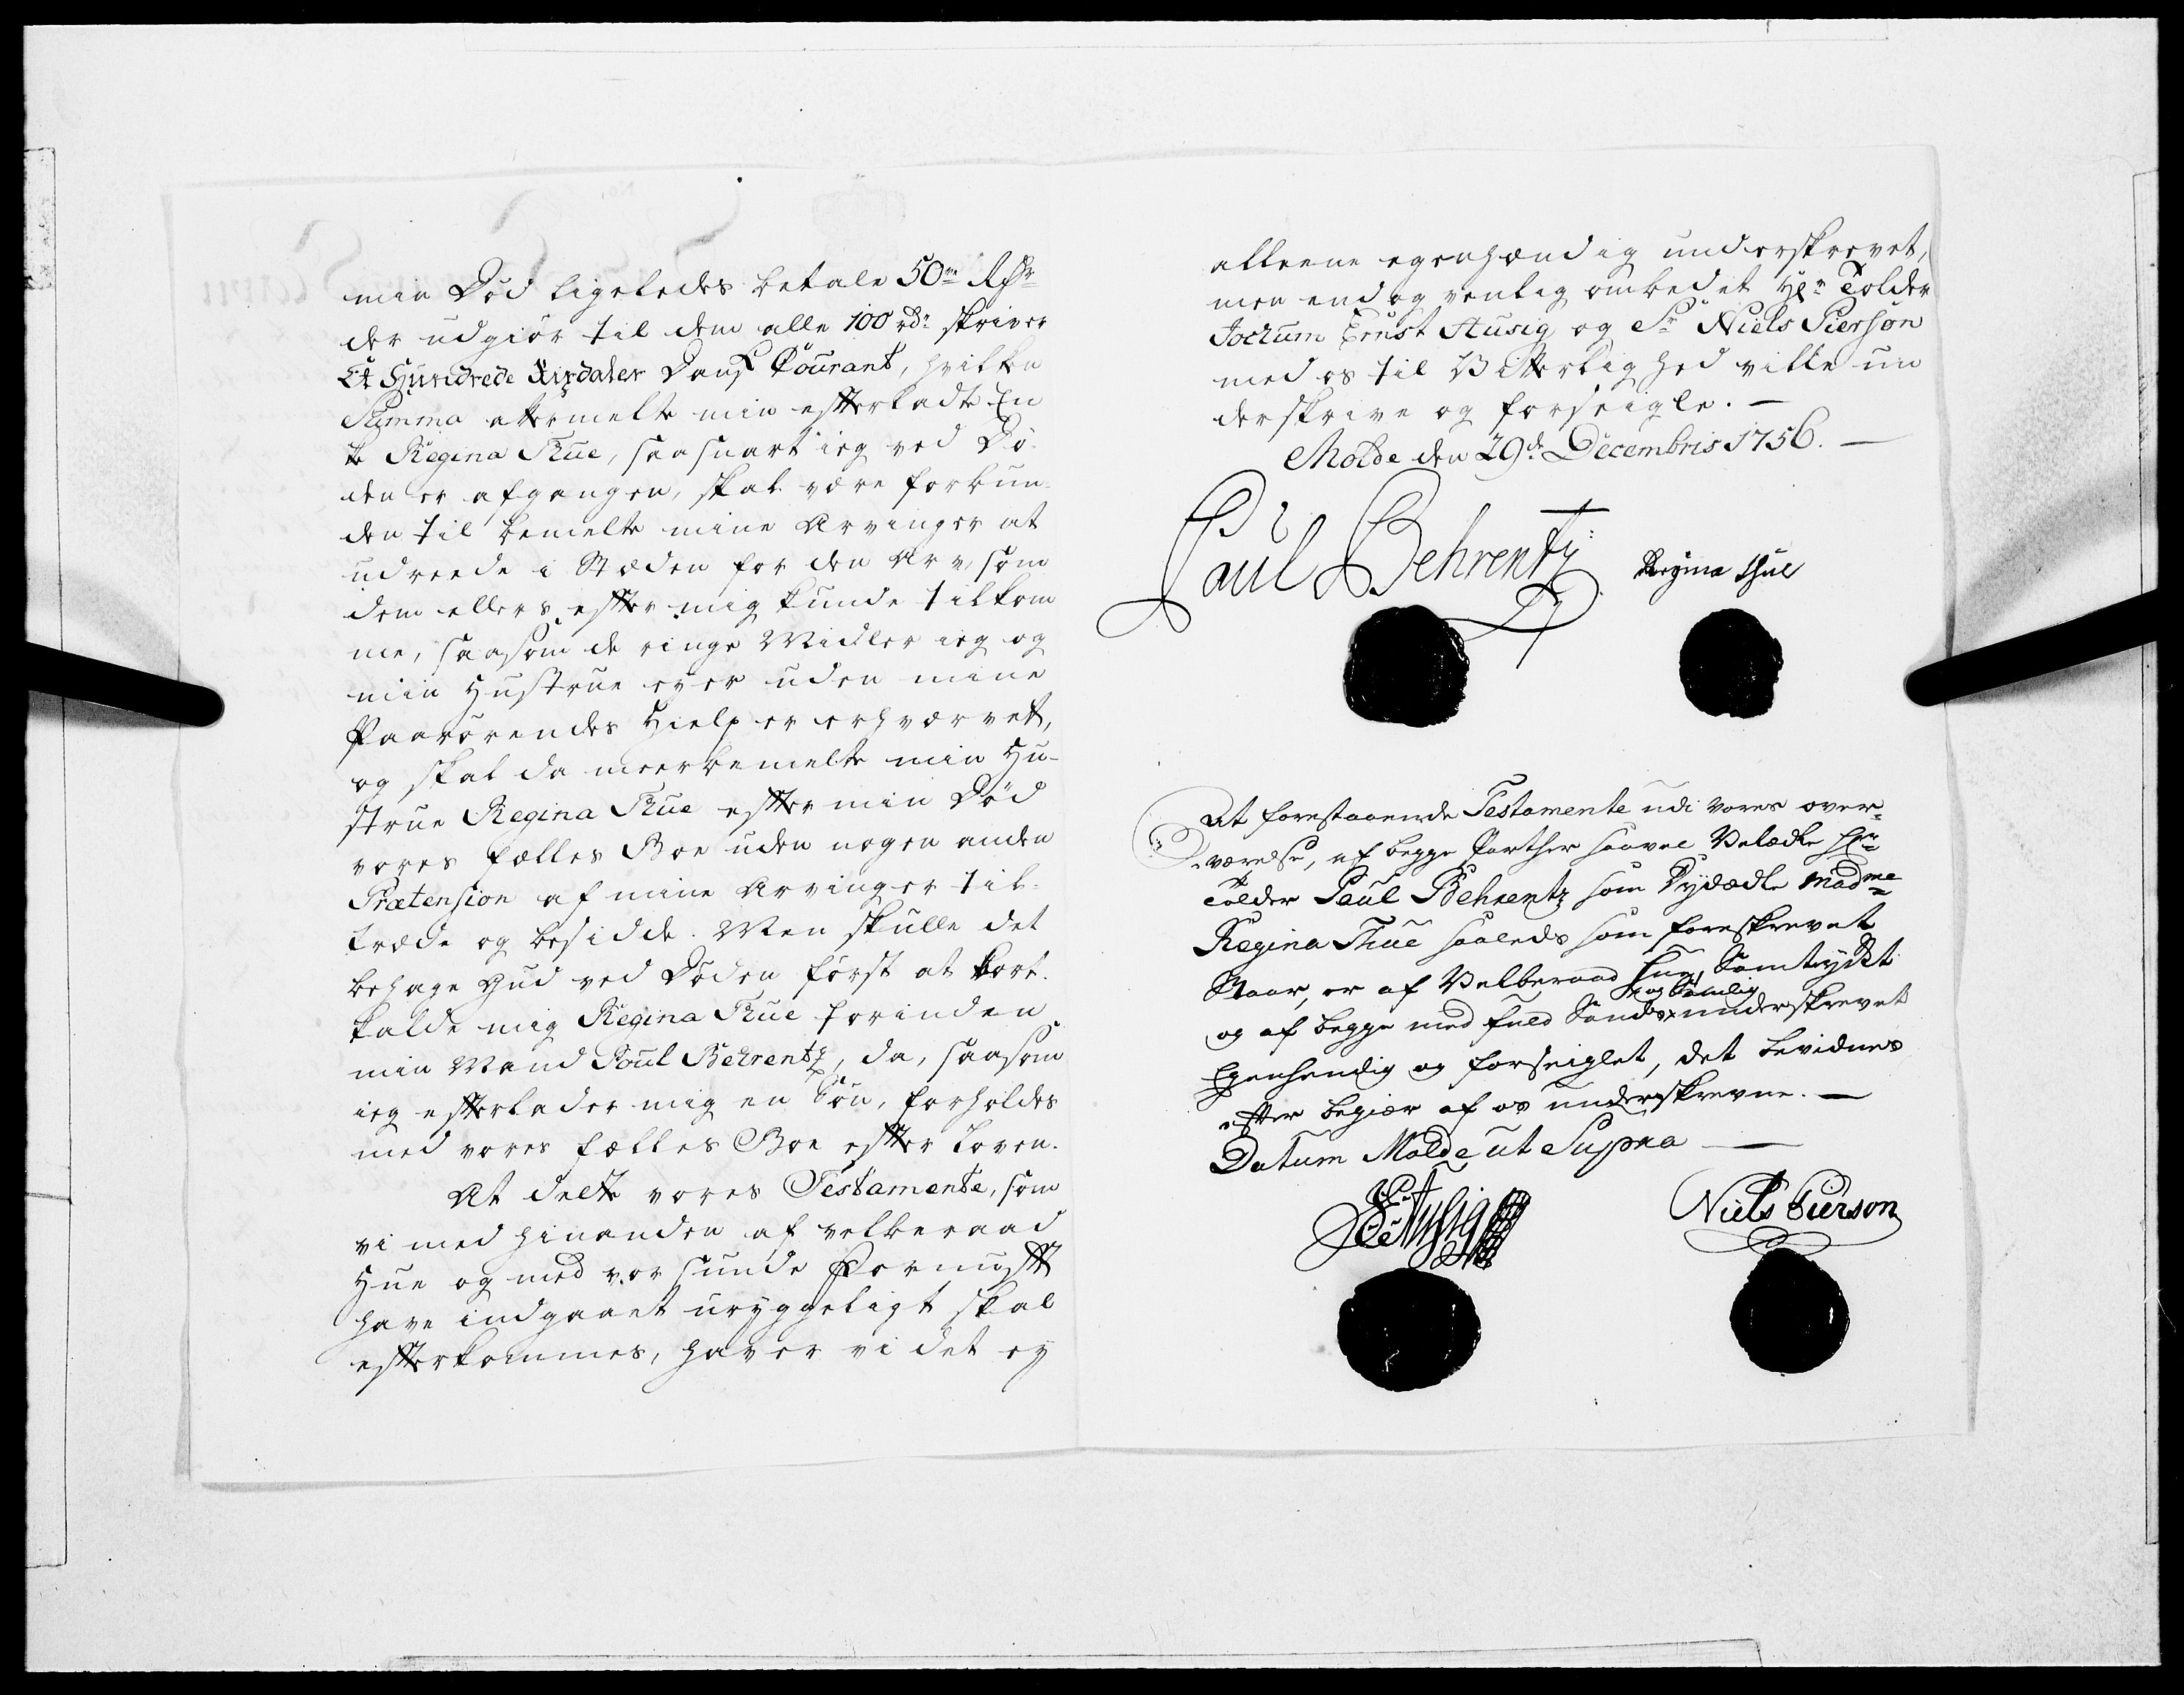 min Død ligeledes betale 50 Rdr
der udgiør til dem alle 100 rdr skriver
Et Hundrede Rixdaler Dansk Courant, hvilken
Summa ermelte min efterladte En
ke Regina Thue, saasnart ieg ved Dø
den er afgangen, skal være forbun
den til bemelte mine Arvinger at
udreede i Stæden for den Arv, som
dem ellers efter mig kunde tilkom
me, saasom de ringe Midler ieg og
min Hustrue eyer uden mine
Paarørendes Hielp er erhvervet,
og skal da meerbemelte min Hu-
strue Regina Thue efter min Død
vores fælles Boe uden nogen anden
Prætension af mine Arvinger til-
træde og besidde. Men skulle det
behage Gud ved Døden først at bort-
kalde mig Regina Thue forinden
min Mand Poul Behrentz, da, saasom
ieg efterlader mig en Søn, forholdes
med vores fælles Boe efter Loven.
At dette vores Testamente, som
vi med hinanden af velberaad
Hue og med vor sunde Fornuft
have indgaaet uryggeligt skal
efterkommes, haver vi det ey
alleene egenhændig underskrevet,
men endog venlig ombedet Hr Tolder
Jochum Ernst Stusig og Sr Niels Pierson
med os til Vitterlighed ville un
derskrive og forseigle. —
Molde den 29de Decembris 1756. —
Paul Behrentz Regina Thue
At forestaaende Testamente udi vores over-
værelse, af begge Parther saavel Velædle Hr
Tolder Paul Behrentz som Dydædle Madme
Regina Thue saaleds som foreskrevet
Staar, er af Velberaad Hue, Samtyckt
og Samlig
og af begge med fuld Sands underskrevet
Egenhendig og forseiglet, det bevidnes
efter begiær af os underskrevne. —
Datum Molde ut Supra —
JEStusig Niels Pierson